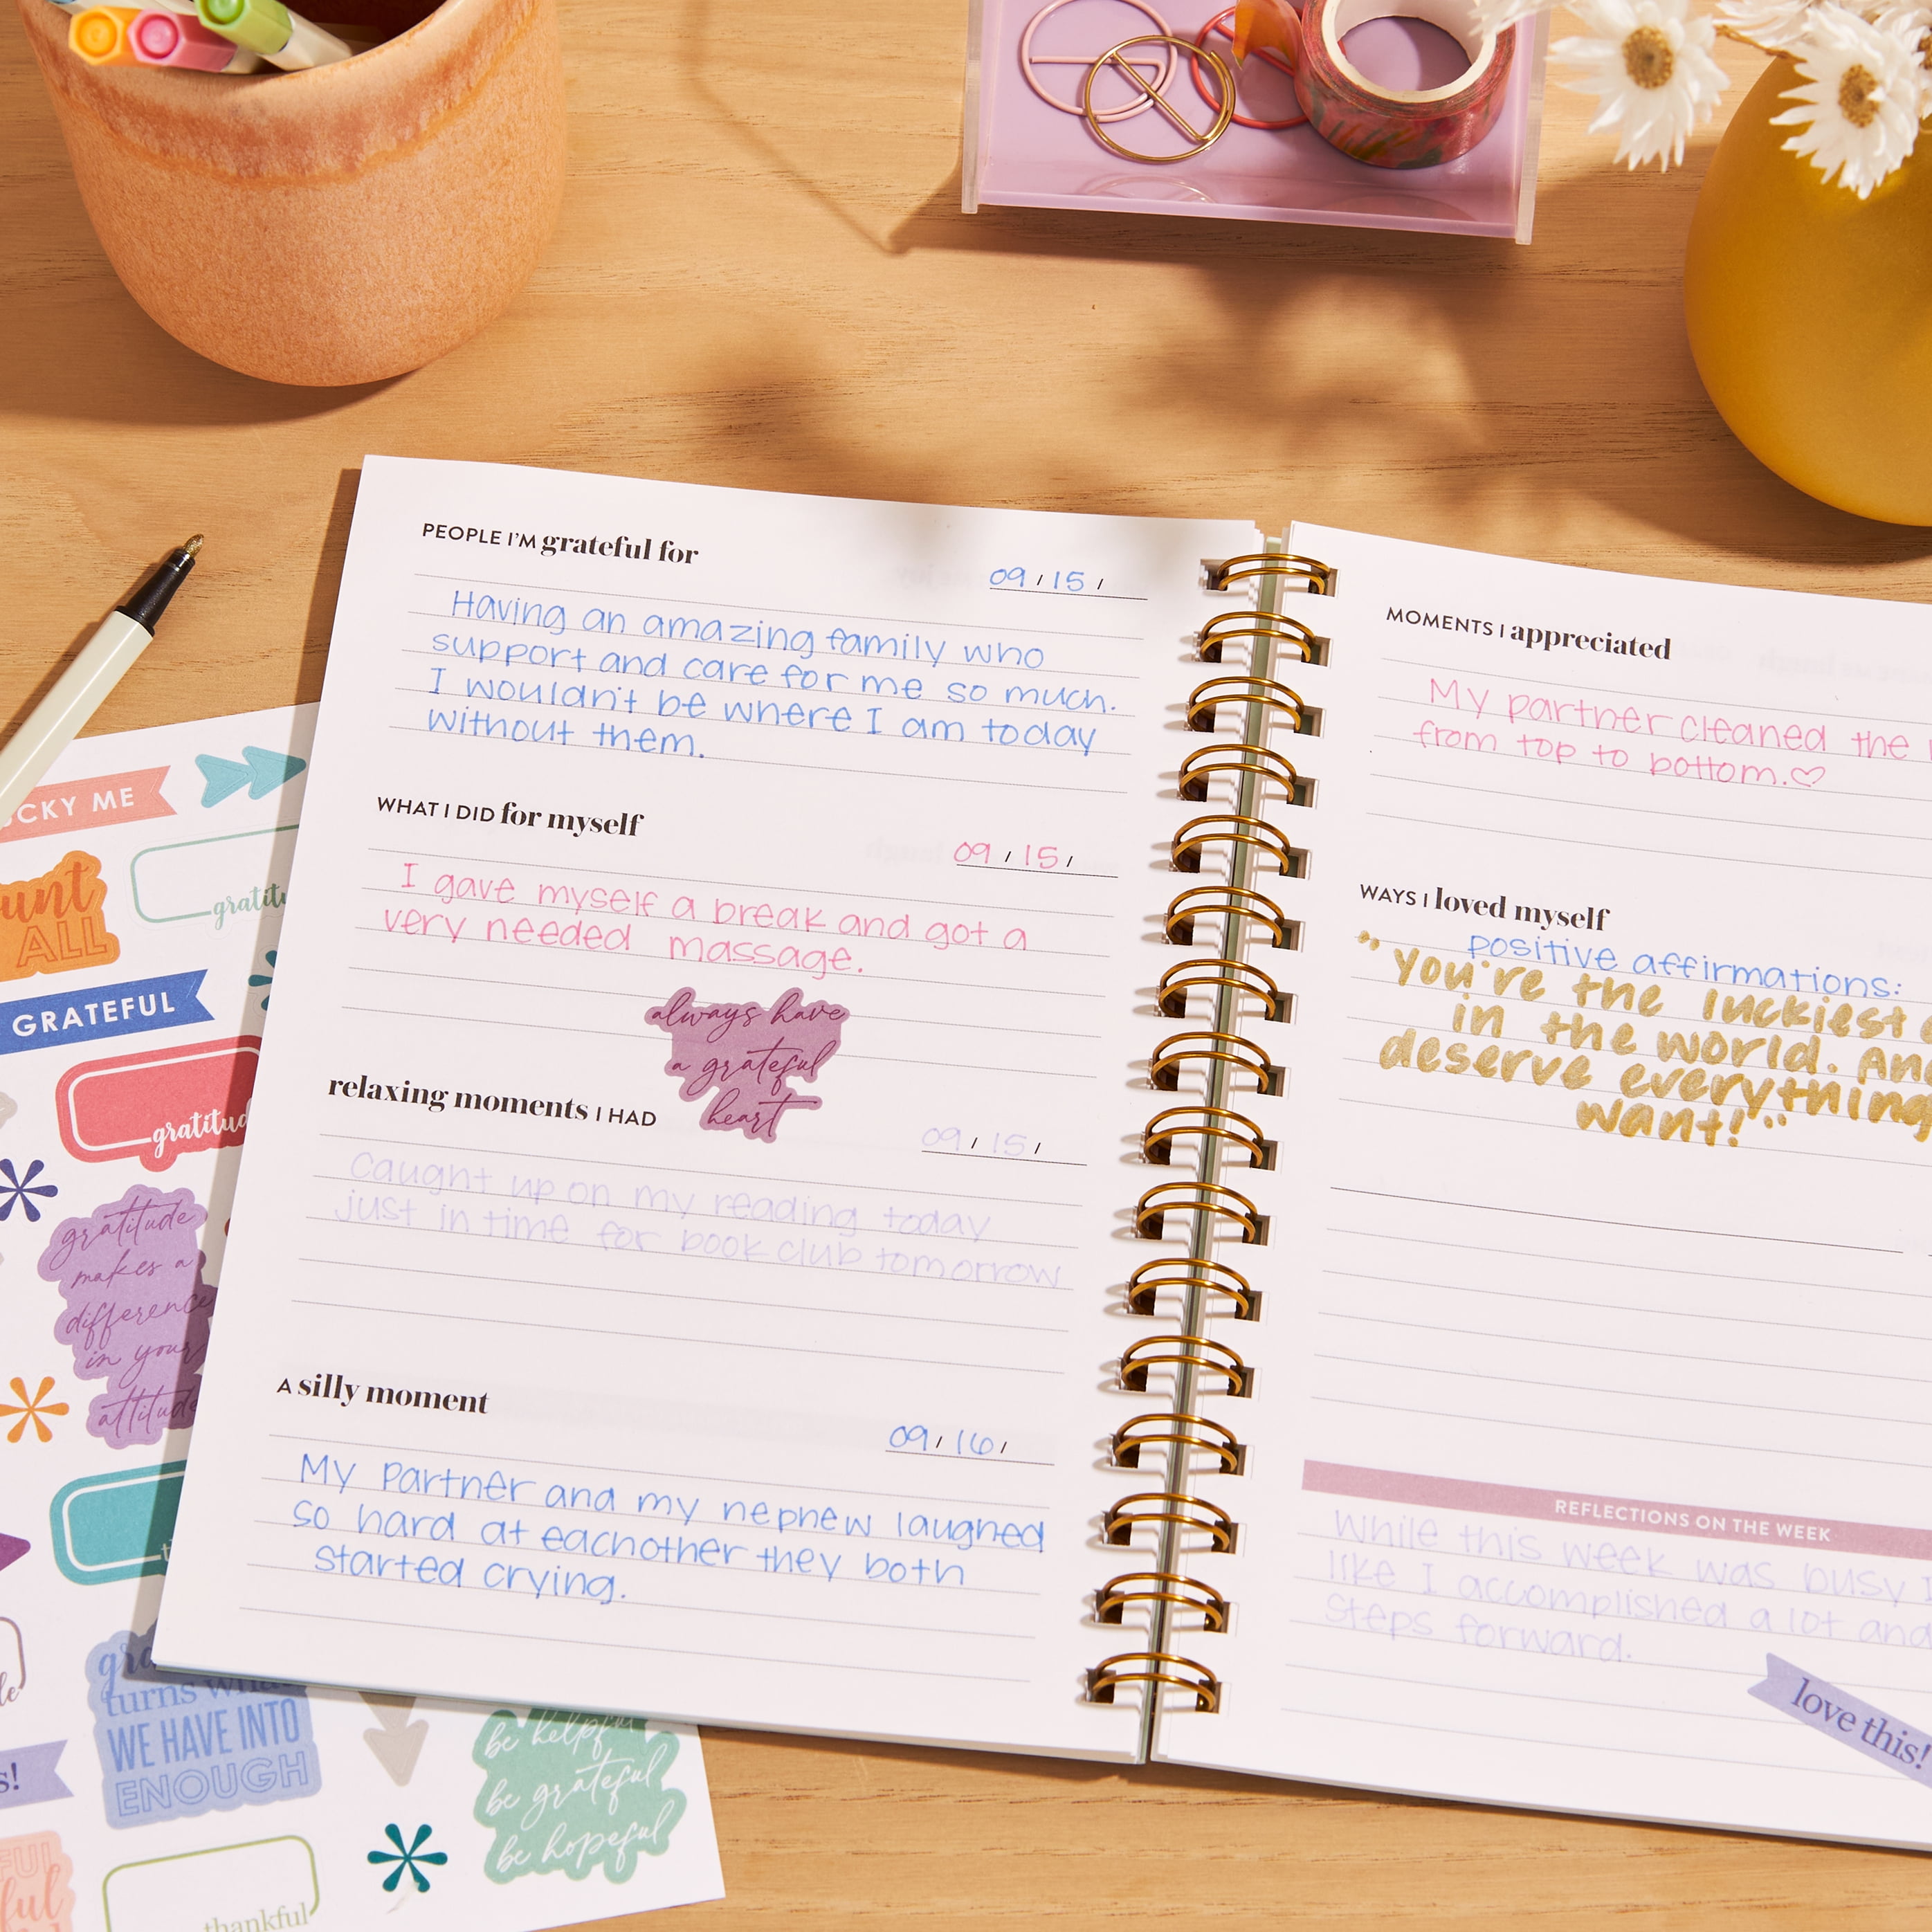 PEOPLE I'M grateful for
09/15/
Having an amazing family who
support and care for me so much.
I wouldn't be where I am today
without them.
WHAT I DID for myself
09/15/
I gave myself a break and got a
very needed massage.
always have
a grateful
heart
relaxing moments I HAD
09/15/
Caught up on my reading today
just in time for book club tomorrow
A silly moment
09/16/
My partner and my nephew laughed
so hard at eachother they both
started crying.
MOMENTS I appreciated
My partner cleaned the
from top to bottom.♡
WAYS I loved myself
positive affirmations:
"You're the luckiest
in the world. And
deserve everything
want!"
REFLECTIONS ON THE WEEK
While this week was busy I
like I accomplished a lot and
steps forward.
love this!
CKY ME
ALL
gratitu
GRATEFUL
gratitud
gratitude
makes a
difference
in your
attitude
turns what
WE HAVE INTO
ENOUGH
be helpful
be grateful
be hopeful
thankful